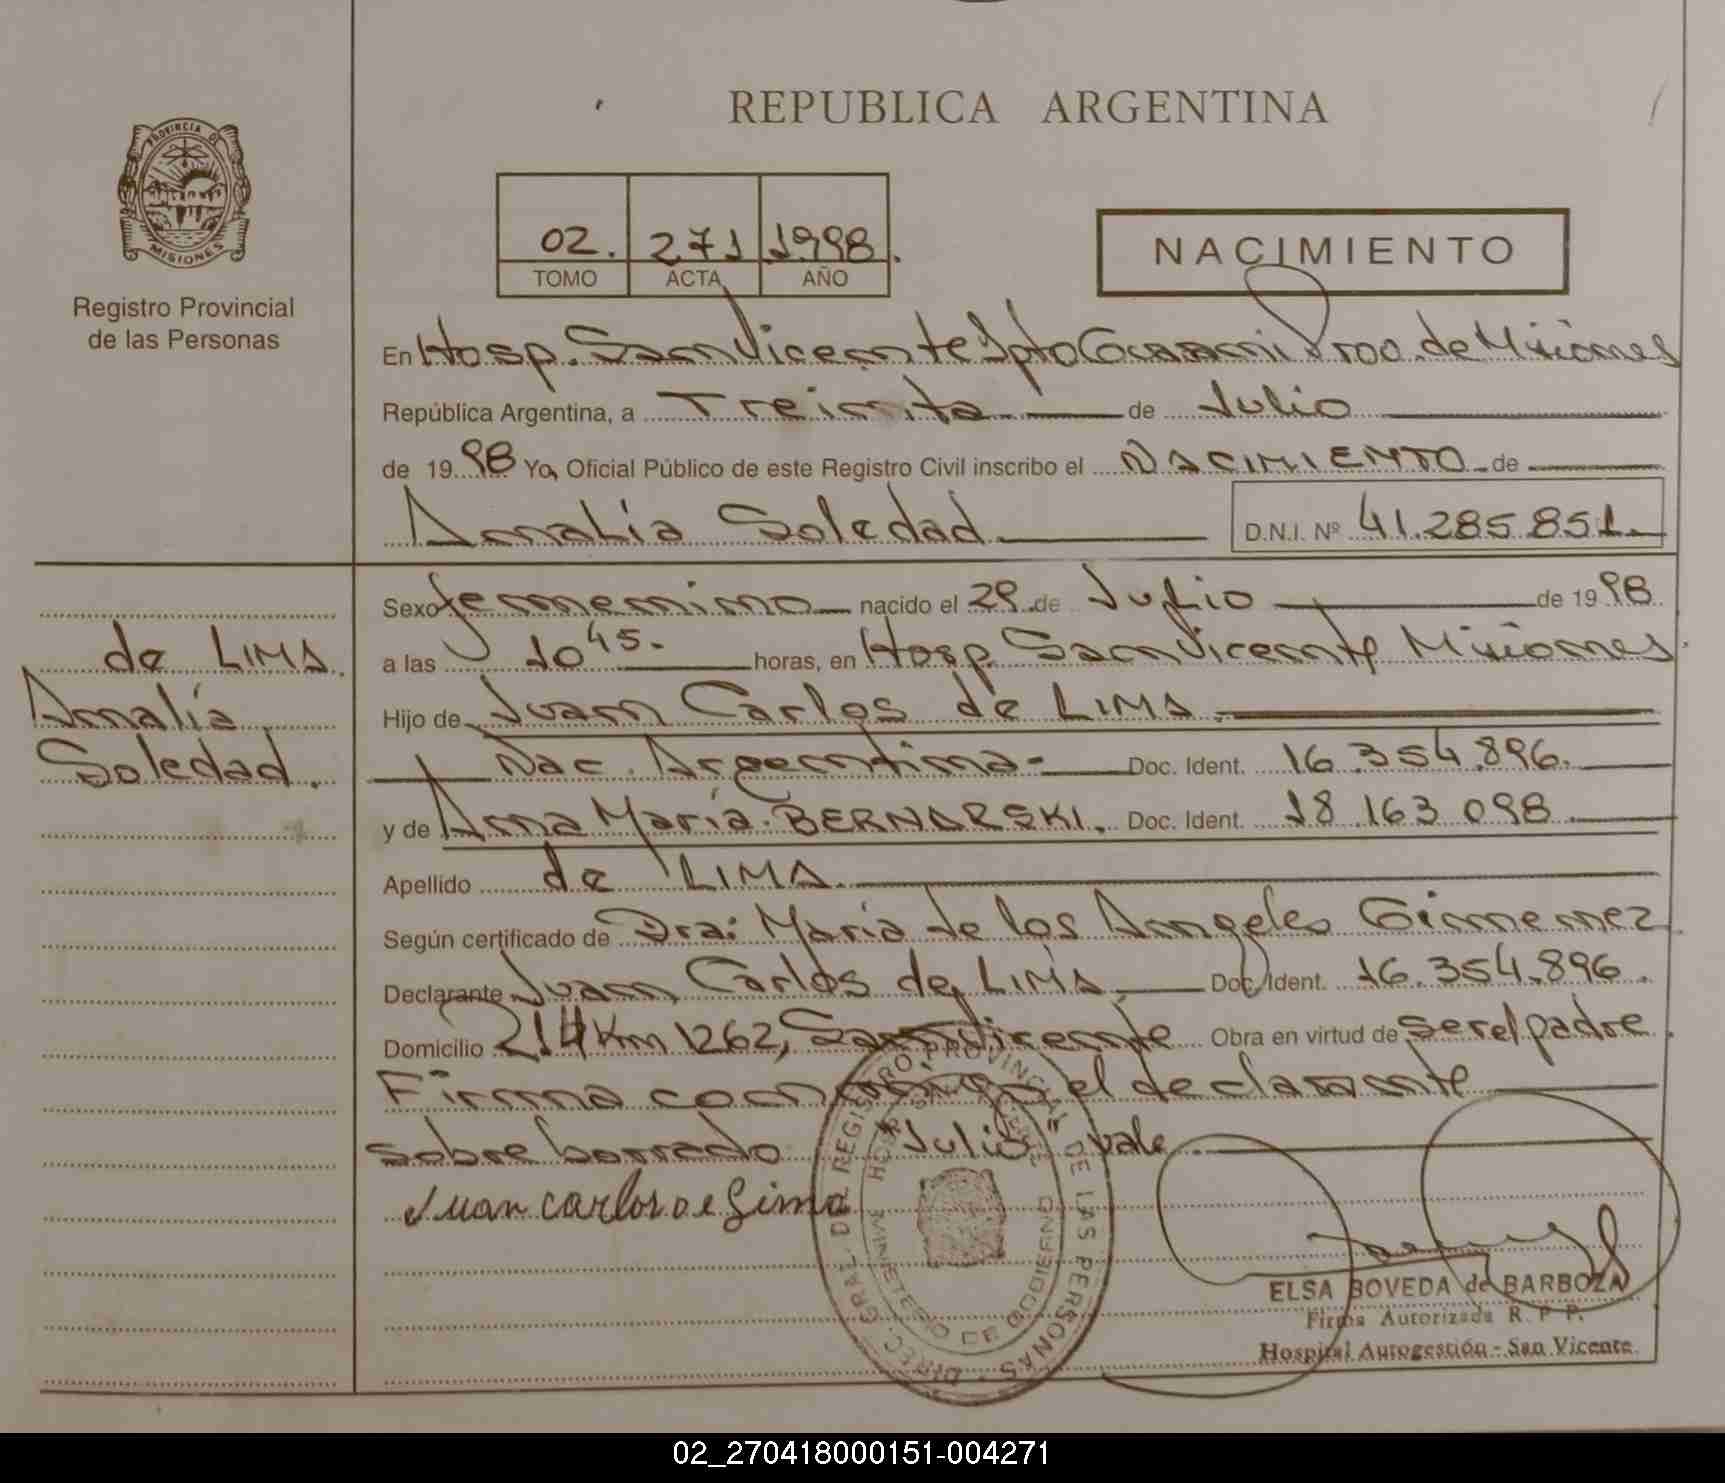 REPUBLICA ARGENTINA
PROVINCIA DE
MISIONES
Registro Provincial
de las Personas
02. 271 1998.
TOMO ACTA AÑO
NACIMIENTO
En Hosp. San Vicente Dpto Guarani Prov. de Misiones
República Argentina, a Treinta de Julio
de 1998 Yo, Oficial Público de este Registro Civil inscribo el NACIMIENTO de
Analia Soledad D.N.I. Nº 41.285.851.
de LIMA.
Analia
Soledad.
Sexo femenino nacido el 29 de Julio de 1998
a las 10 45. horas, en Hosp. San Vicente Misiones.
Hijo de Juan Carlos de LIMA.
Nac. Argentina- Doc. Ident. 16.354.896.
y de Ana María BERNARSKI. Doc. Ident. 18 163 098
Apellido de LIMA.
Según certificado de Dra: Maria de los Angeles Gimenez
Declarante Juan Carlos de LIMA. Doc. Ident. 16.354.896.
Domicilio 214 Km 1262, San Vicente Obra en virtud de ser el padre.
Firma conmigo el declarante
sobre borrado "Julio" vale.
Juan carlos de Lima
DIREC. GRAL. DEL REGISTRO PROVINCIAL DE LAS PERSONAS
HOSP. SAN VICENTE
MINISTERIO DE GOBIERNO
ELSA BOVEDA de BARBOZA
Firma Autorizada R. P. P.
Hospital Autogestión - San Vicente
02_270418000151-004271